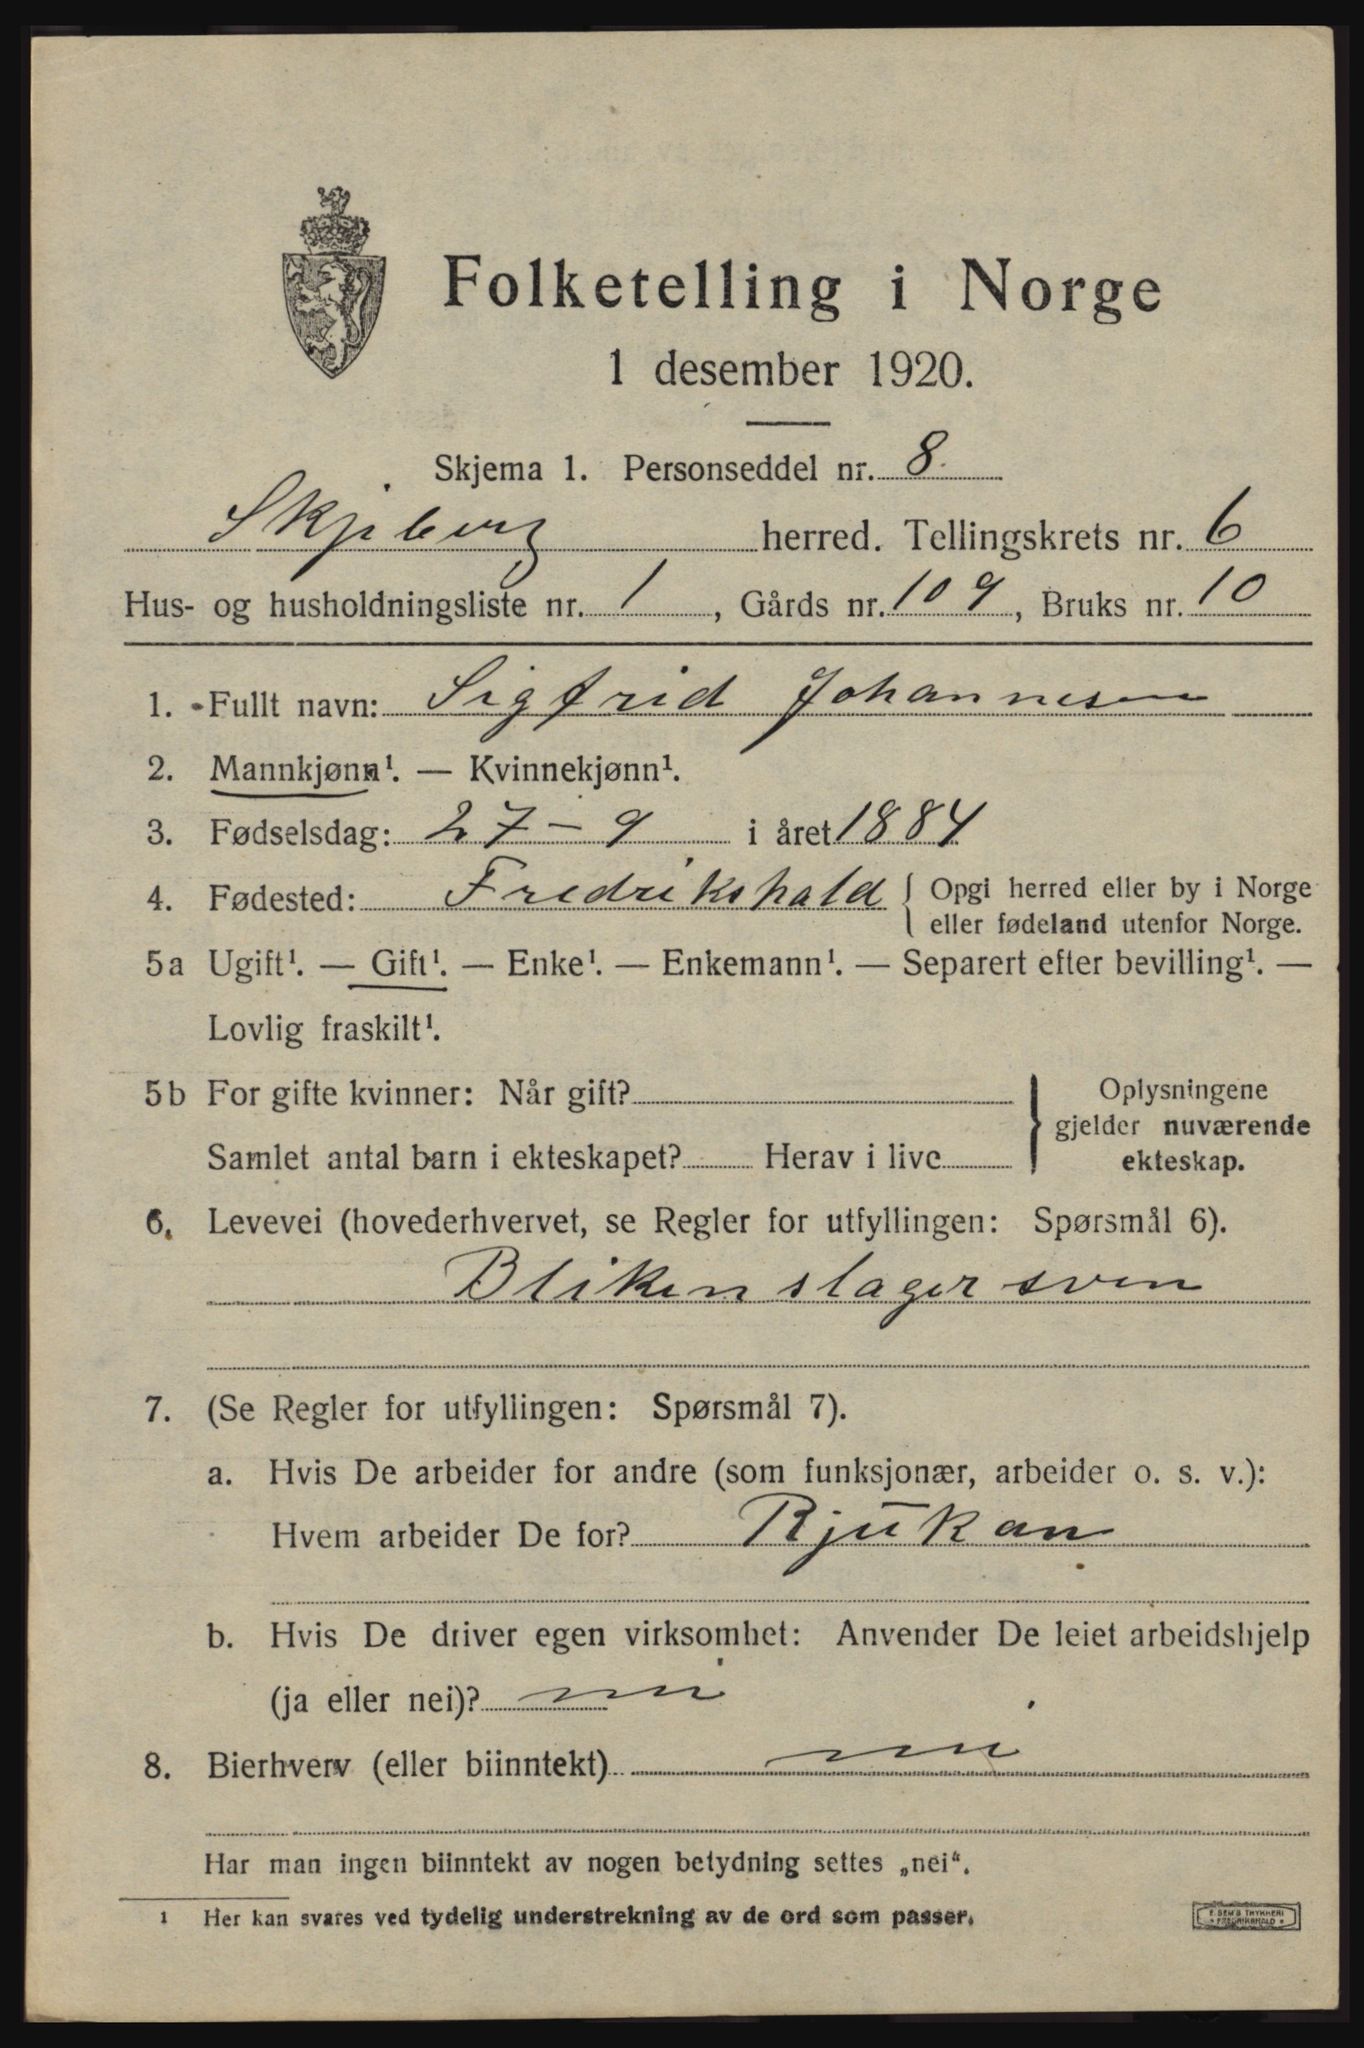 Folketelling i Norge
1 desember 1920.
Skjema 1. Personseddel nr. 8.
Skjeberg herred. Tellingskrets nr. 6
Hus- og husholdningsliste nr. 1, Gårds nr. 109, Bruks nr. 10
1. Fullt navn: Sigfrid Johannesen
2. Mannkjønn¹. — Kvinnekjønn¹.
3. Fødselsdag: 27-9 i året 1884
4. Fødested: Fredrikshald { Opgi herred eller by i Norge
eller fødeland utenfor Norge.
5a Ugift¹. — Gift¹. — Enke¹. — Enkemann¹. — Separert efter bevilling¹. —
Lovlig fraskilt¹.
5b For gifte kvinner: Når gift? Oplysningene
gjelder nuværende
Samlet antal barn i ekteskapet? Herav i live ekteskap.
6. Levevei (hovederhvervet, se Regler for utfyllingen: Spørsmål 6).
Blikenslagersven
7. (Se Regler for utfyllingen: Spørsmål 7).
a. Hvis De arbeider for andre (som funksjonær, arbeider o. s. v.):
Hvem arbeider De for? Rjukan
b. Hvis De driver egen virksomhet: Anvender De leiet arbeidshjelp
(ja eller nei)? nei
8. Bierhverv (eller biinntekt) nei
Har man ingen biinntekt av nogen betydning settes „nei“.
1 Her kan svares ved tydelig understrekning av de ord som passer.
E. SEM'S TRYKKERI
FREDRIKSHALD